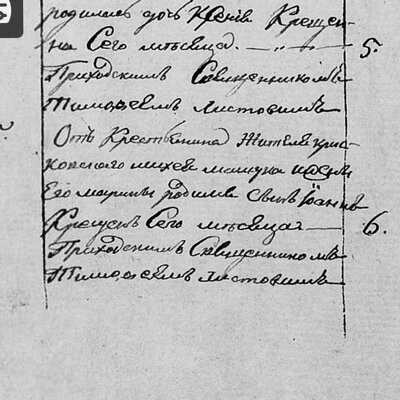 родилась дочь Ксенiя Креще-
на Сего мѣсяца — „ — „ — 5.
Приходскимъ Священникомъ
Тимофеемъ Листовимъ
Отъ Крестьянина Жителя
Михея и жены
Его марины родился Сынъ Iоаннъ
Крещенъ Сего мѣсяца — 6.
Приходскимъ Священникомъ
Тимофеемъ Листовимъ